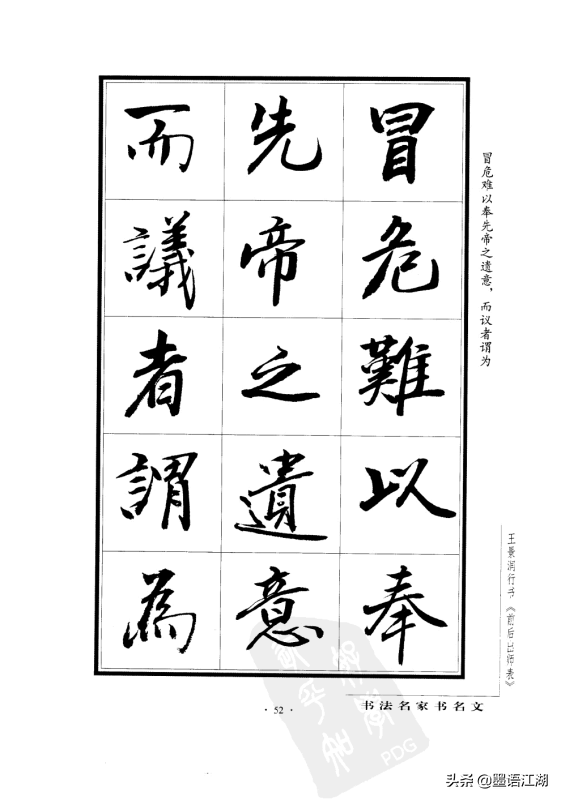 冒危難以奉
先帝之遺意
而議者謂為
冒危难以奉先帝之遗意，而议者谓为
王景润行书《前后出师表》
书法名家书名文
· 52 ·
PDG
头条 @墨语江湖